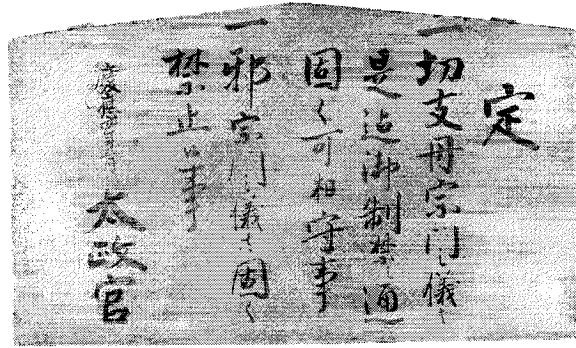 定
一切支丹宗門之儀ハ
是迄御制禁之通リ
固ク可相守事
一邪宗門之儀ハ固ク
禁止候事
慶應四年三月 太政官